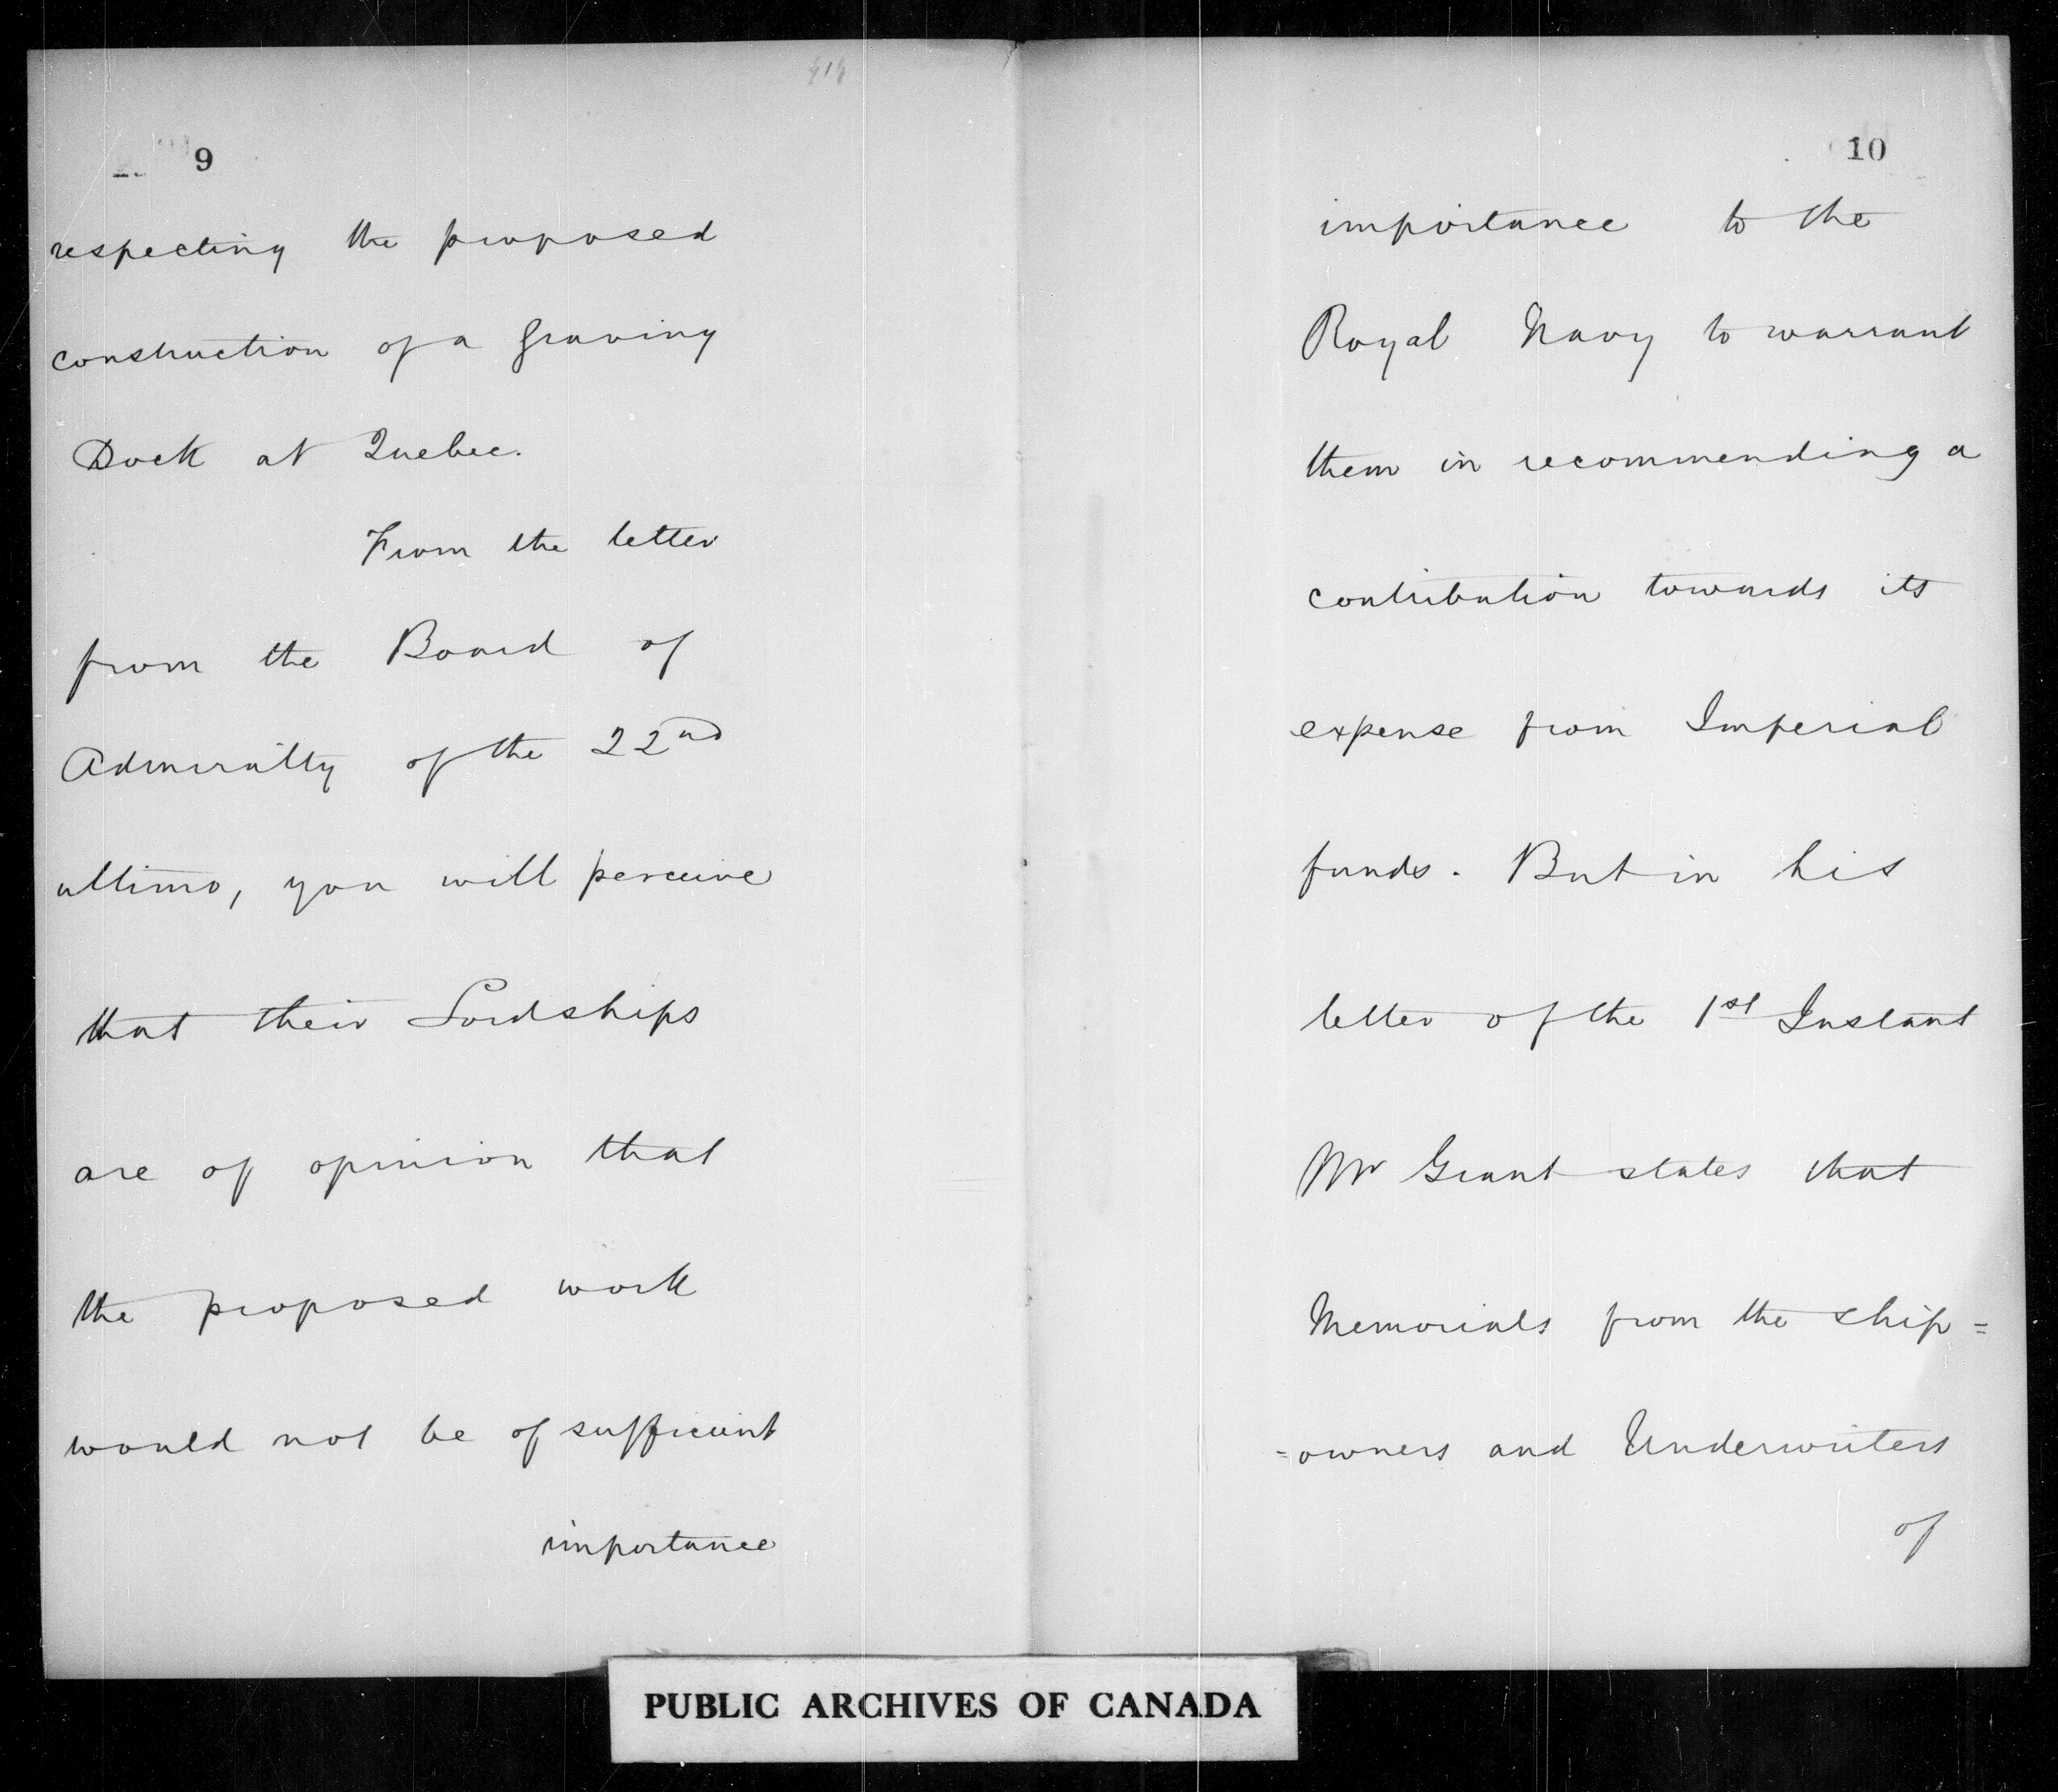 9
respecting the proposed
construction of a Graving
Dock at Quebec.
From the letter
from the Board of
Admiralty of the 22nd
ultimo, you will perceive
that their Lordships
are of opinion that
the proposed work
would not be of sufficient
importance
10
importance to the
Royal Navy to warrant
them in recommending a
contribution towards its
expense from Imperial
funds. But in his
letter of the 1st Instant
Mr Grant states that
Memorials from the ship=
=owners and Underwriters
of
PUBLIC ARCHIVES OF CANADA